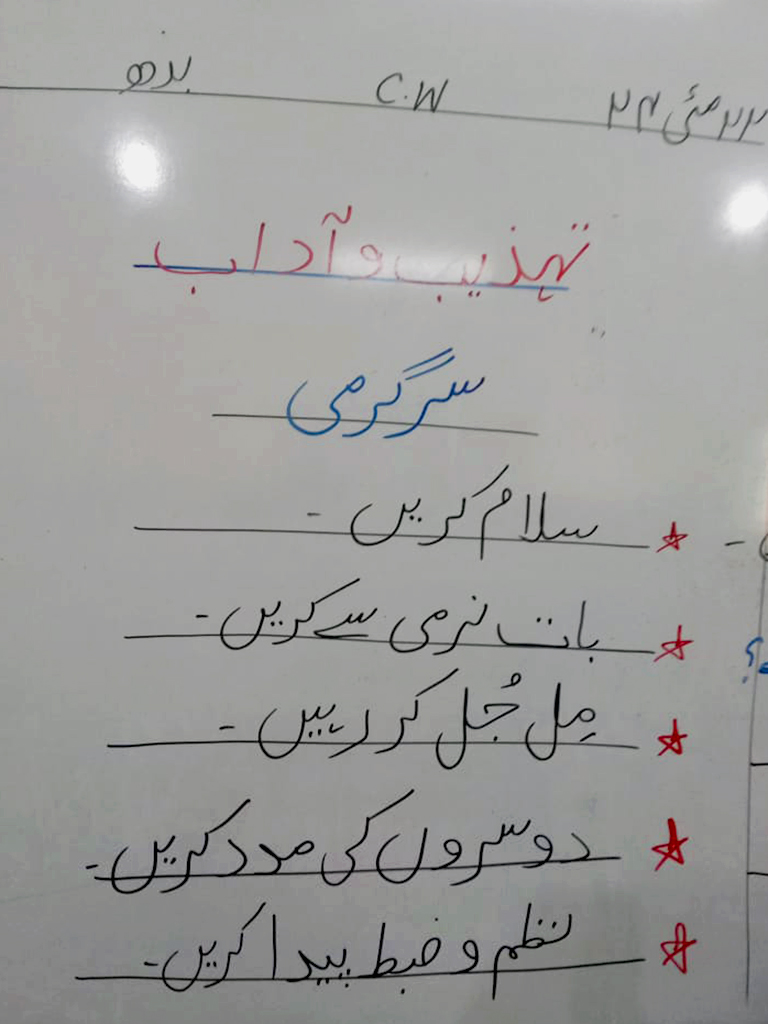 ۲۲ مئی ۲۴ C.W بدھ
تہذیب و آداب
سرگرمی
سلام کریں ۔
بات نرمی سے کریں ۔
مِل جُل کر رہیں ۔
دوسروں کی مدد کریں ۔
نظم و ضبط پیدا کریں ۔